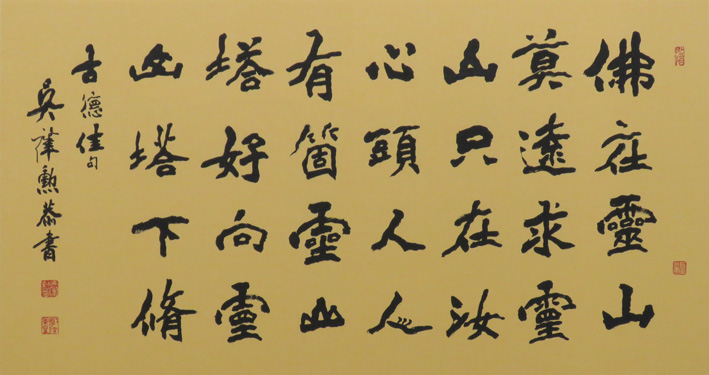 佛在靈山
莫遠求靈
山只在汝
心頭人人
有箇靈山
塔好向靈
山塔下脩
古德佳句
吳肇勳恭書